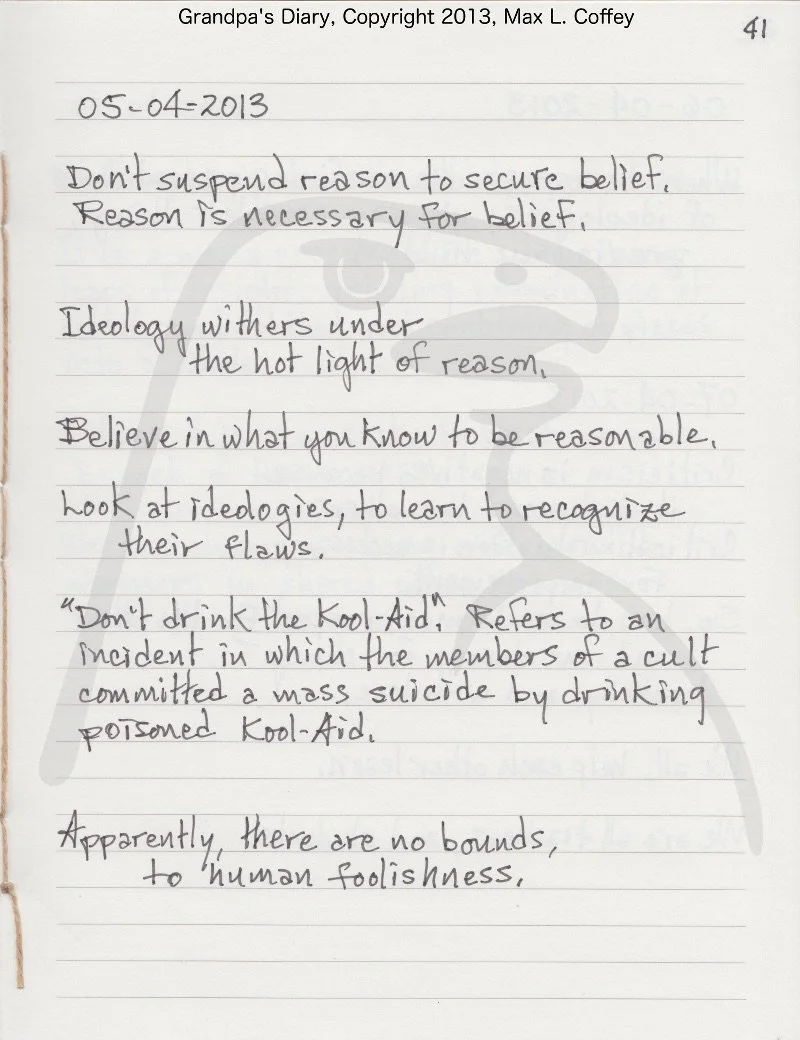 Grandpa's Diary, Copyright 2013, Max L. Coffey
41
05-04-2013
Don't suspend reason to secure belief.
Reason is necessary for belief.
Ideology withers under
the hot light of reason.
Believe in what you know to be reasonable.
Look at ideologies, to learn to recognize
their flaws.
"Don't drink the Kool-Aid". Refers to an
incident in which the members of a cult
committed a mass suicide by drinking
poisoned Kool-Aid.
Apparently, there are no bounds,
to human foolishness.